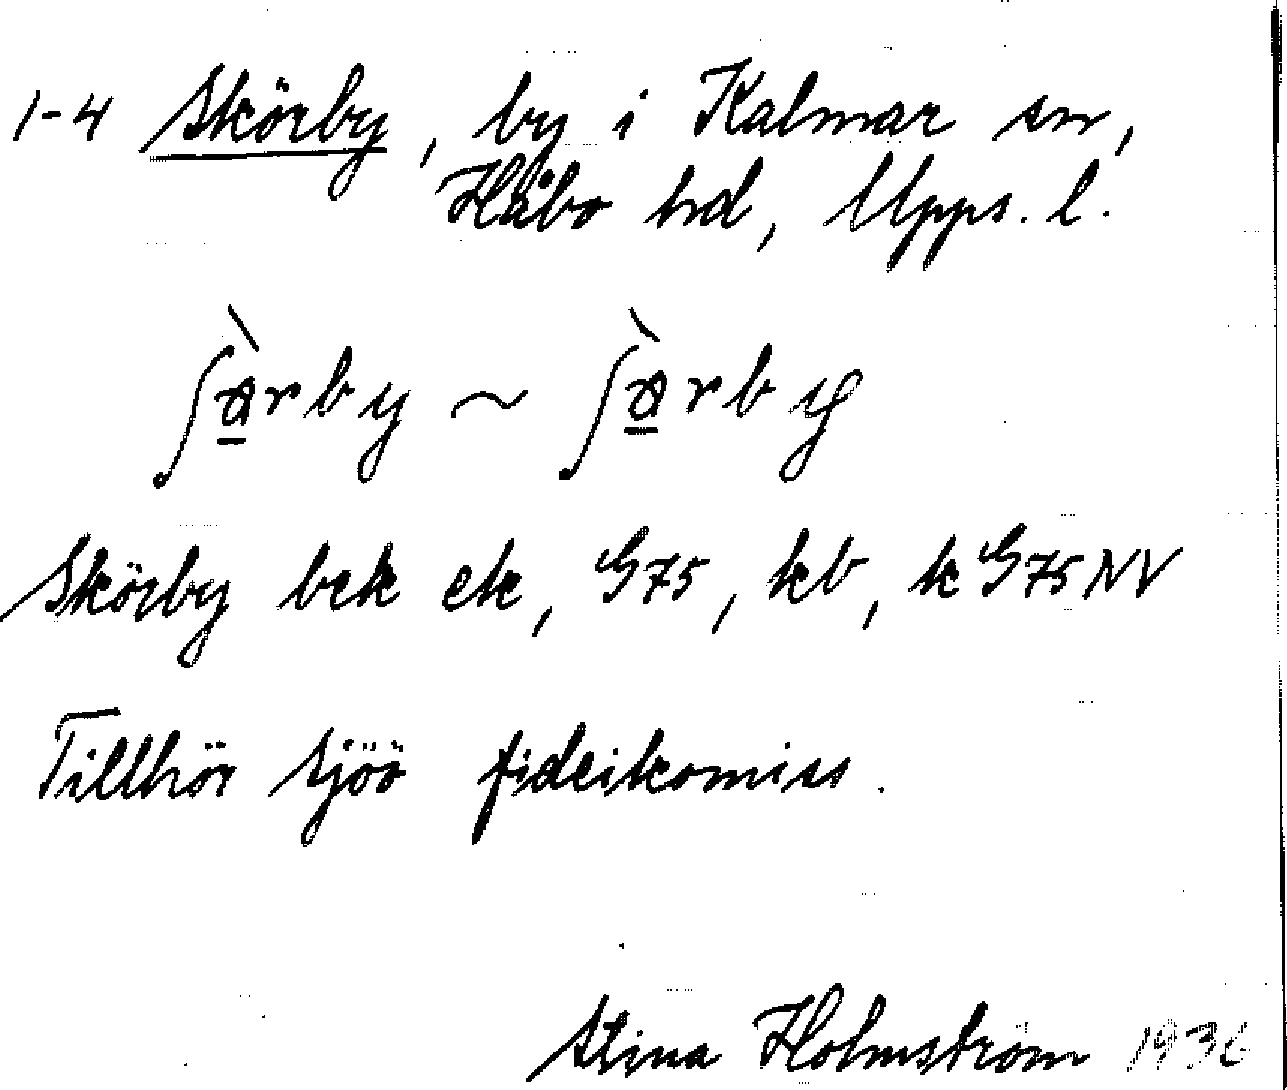 1-4 Skörby, by i Kalmar sn,
Håbo hd, Upps. l.
ʃö̀rby ~ ʃö̀rby
Skörby bek ek, G75, kb, k G75 NV
Tillhör Sjöö fideikomiss.
Stina Holmström 1936